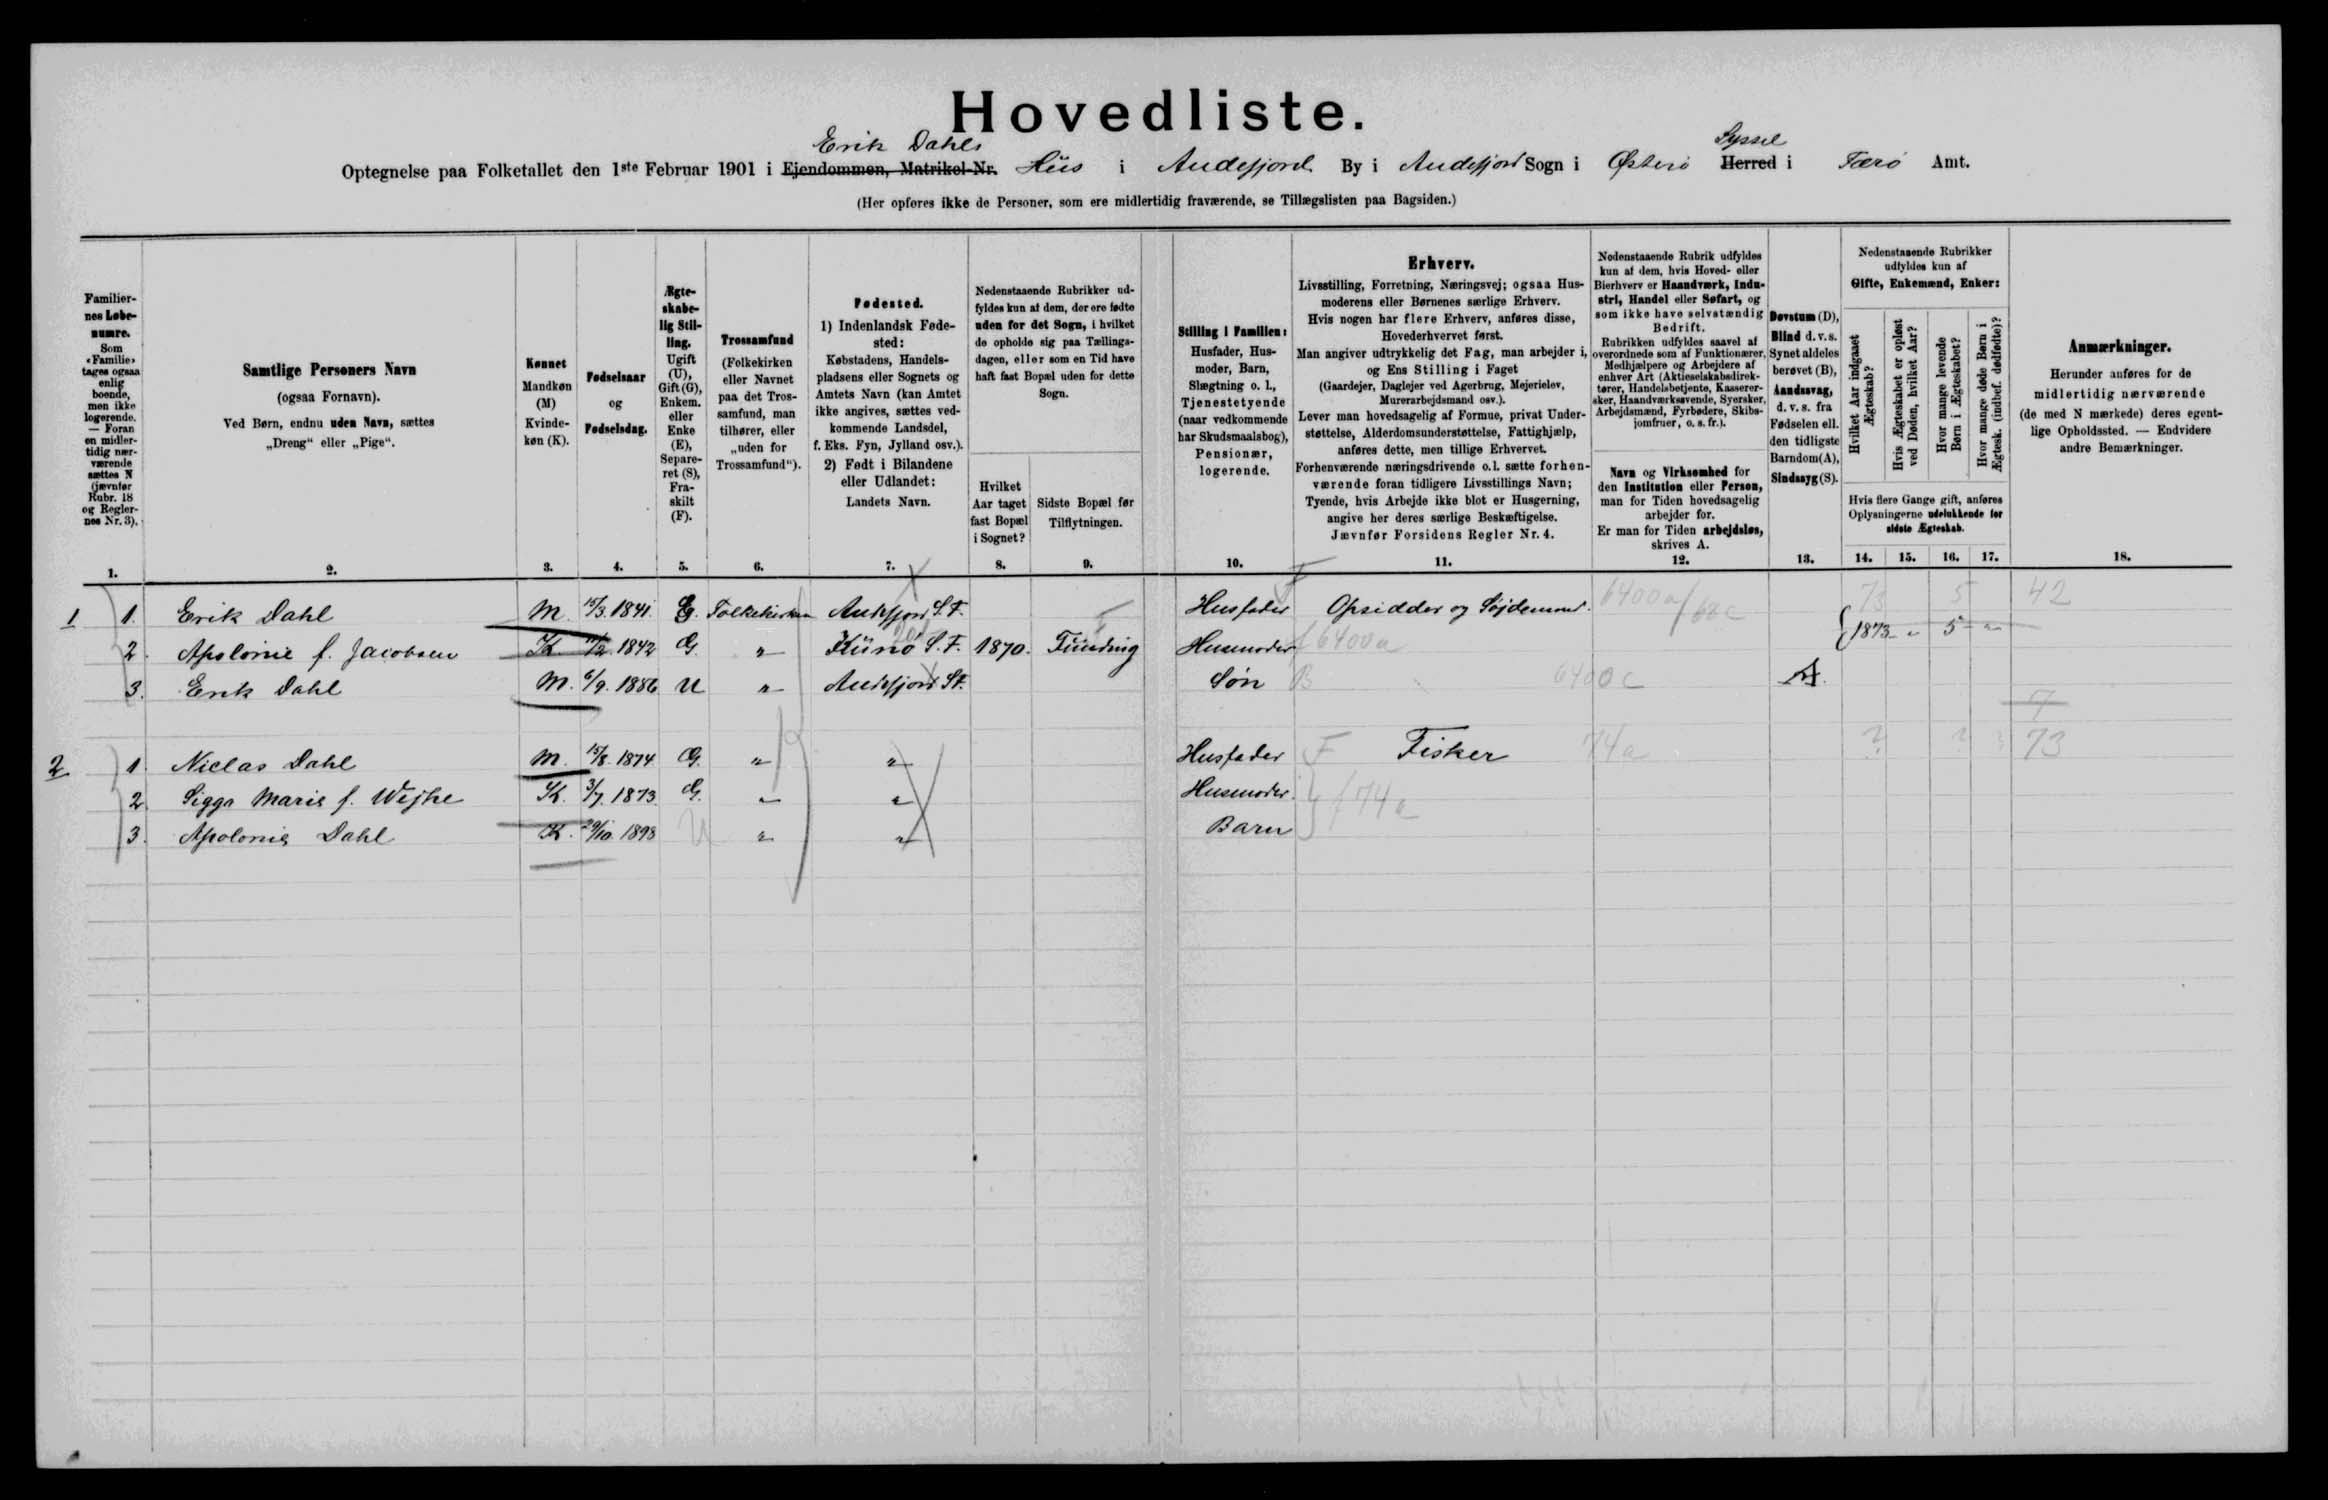 Hovedliste.
Erik Dahls
Syssel
Optegnelse paa Folketallet den 1ste Februar 1901 i Ejendommen, Matrikel-Nr. Hüs i Andefjord By i Andefjord Sogn i Østerö Herred i Færö Amt.
(Her opføres ikke de Personer, som ere midlertidig fraværende, se Tillægslisten paa Bagsiden.)
Familier-
nes Løbe-
numre.
Som
«Familie»
tages ogsaa
enlig
boende,
men ikke
logerende.
— Foran
en midler-
tidig nær-
værende
sættes N
(jævnfør
Rubr. 18
og Regler-
nes Nr. 3).
1.
Samtlige Personers Navn
(ogsaa Fornavn).
Ved Børn, endnu uden Navn, sættes
„Dreng“ eller „Pige“.
2.
Kønnet
Mandkøn
(M)
Kvinde-
køn (K).
3.
Fødselsaar
og
Fødselsdag.
4.
Ægte-
skabe-
lig Stil-
ling.
Ugift
(U),
Gift (G),
Enkem.
eller
Enke
(E),
Separe-
ret (S),
Fra-
skilt
(F).
5.
Trossamfund
(Folkekirken
eller Navnet
paa det Tros-
samfund, man
tilhører, eller
„uden for
Trossamfund“).
6.
Fødested.
1) Indenlandsk Føde-
sted:
Købstadens, Handels-
pladsens eller Sognets og
Amtets Navn (kan Amtet
ikke angives, sættes ved-
kommende Landsdel,
f. Eks. Fyn, Jylland osv.).
2) Født i Bilandene
eller Udlandet:
Landets Navn.
7.
Nedenstaaende Rubrikker ud-
fyldes kun af dem, der ere fødte
uden for det Sogn, i hvilket
de opholde sig paa Tællings-
dagen, eller som en Tid have
haft fast Bopæl uden for dette
Sogn.
Hvilket
Aar taget
fast Bopæl
i Sognet?
8.
Sidste Bopæl før
Tilflytningen.
9.
Stilling i Familien:
Husfader, Hus-
moder, Barn,
Slægtning o. l.,
Tjenestetyende
(naar vedkommende
har Skudsmaalsbog),
Pensionær,
logerende.
10.
Erhverv.
Livsstilling, Forretning, Næringsvej; ogsaa Hus-
moderens eller Børnenes særlige Erhverv.
Hvis nogen har flere Erhverv, anføres disse,
Hovederhvervet først.
Man angiver udtrykkelig det Fag, man arbejder i,
og Ens Stilling i Faget
(Gaardejer, Daglejer ved Agerbrug, Mejerielev,
Murerarbejdsmand osv.).
Lever man hovedsagelig af Formue, privat Under-
støttelse, Alderdomsunderstøttelse, Fattighjælp,
anføres dette, men tillige Erhvervet.
Forhenværende næringsdrivende o. l. sætte forhen-
værende foran tidligere Livsstillings Navn;
Tyende, hvis Arbejde ikke blot er Husgerning,
angive her deres særlige Beskæftigelse.
Jævnfør Forsidens Regler Nr. 4.
11.
Nedenstaaende Rubrik udfyldes
kun af dem, hvis Hoved- eller
Bierhverv er Haandværk, Indu-
stri, Handel eller Søfart, og
som ikke have selvstændig
Bedrift.
Rubrikken udfyldes saavel af
overordnede som af Funktionærer,
Medhjælpere og Arbejdere af
enhver Art (Aktieselskabsdirek-
tører, Handelsbetjente, Kasserer-
sker, Haandværkssvende, Syersker,
Arbejdsmænd, Fyrbødere, Skibs-
jomfruer, o. s. fr.).
Navn og Virksomhed for
den Institution eller Person,
man for Tiden hovedsagelig
arbejder for.
Er man for Tiden arbejdsløs,
skrives A.
12.
Døvstum (D),
Blind d. v. s.
Synet aldeles
berøvet (B),
Aandssvag,
d. v. s. fra
Fødselen ell.
den tidligste
Barndom (A),
Sindssyg (S).
13.
Nedenstaaende Rubrikker
udfyldes kun af
Gifte, Enkemænd, Enker:
Hvilket Aar indgaaet
Ægteskab?
Hvis Ægteskabet er opløst
ved Døden, hvilket Aar?
Hvor mange levende
Børn i Ægteskabet?
Hvor mange døde Børn i
Ægtesk. (indbef. dødfødte)?
Hvis flere Gange gift, anføres
Oplysningerne udelukkende for
sidste Ægteskab.
14. 15. 16. 17.
Anmærkninger.
Herunder anføres for de
midlertidig nærværende
(de med N mærkede) deres egent-
lige Opholdssted. — Endvidere
andre Bemærkninger.
18.
1 1. Erik Dahl M. 15/3. 1841. G. Folkekirken Andefjord S. F. Husfader F Opsidder og Søjdemand. 6400a/68c 73 5 42
2. Apolonie f. Jacobsen K. 11/2. 1842 G. " Künö S. F. 1870. Fünding Husmoder f 6400a 1873 " 5 "
3. Erik Dahl M. 6/9. 1886 U " Andefjord S F. Søn B 6400c A. 7
2 1. Niclas Dahl M. 15/8. 1874 G. " " Husfader F Fisker 74a ? ? ? 73
2 Sigga Marie f. Wejhe K. 3/7. 1873. G. " " Husmoder. f 74a
3. Apolonie Dahl K. 29/10. 1898 U " " Barn